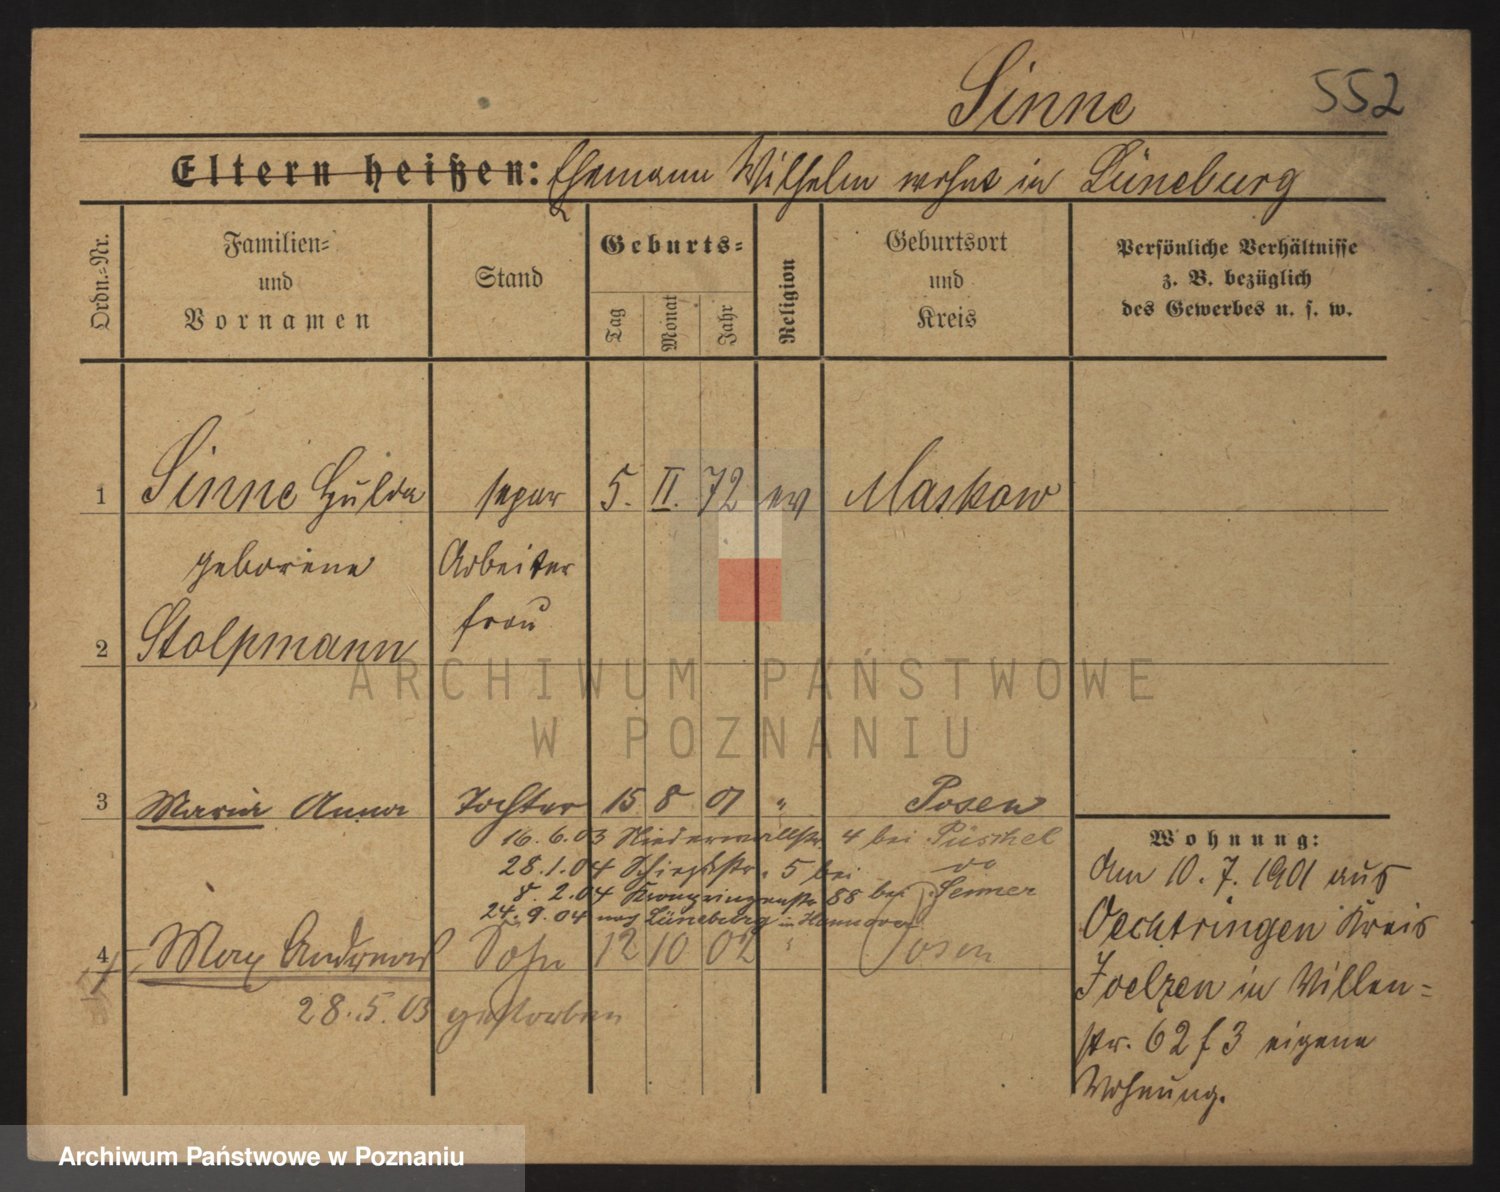 Sinne 552
Eltern heißen: Ehemann Wilhelm wohnt in Lüneburg
Ordn.-Nr.
Familien-
und
Vornamen
Stand
Geburts-
Tag
Monat
Jahr
Religion
Geburtsort
und
Kreis
Persönliche Verhältnisse
z. B. bezüglich
des Gewerbes u. s. w.
1 Sinne Hulda separ 5. II. 72 ev Maskow
geborene Arbeiter
frau
2 Stolpmann
3 Maria Anna Tochter 15 8 01 " Posen
16. 6. 03 Niederwallstr 4 bei Püschel
28. 1. 04 5 bei do
8. 2. 04 Kronprinzenstr 88 bei
24. 9. 04 nach Lüneburg in Hannover
4 Max Andreas Sohn 12 10 02 " Posen
28. 5. 03 gestorben
Wohnung:
Am 10. 7. 1901 aus
Oechtringen Kreis
in Villen-
str. 62 3 eigene
Wohnung.
ARCHIWUM PAŃSTWOWE
W POZNANIU
Archiwum Państwowe w Poznaniu